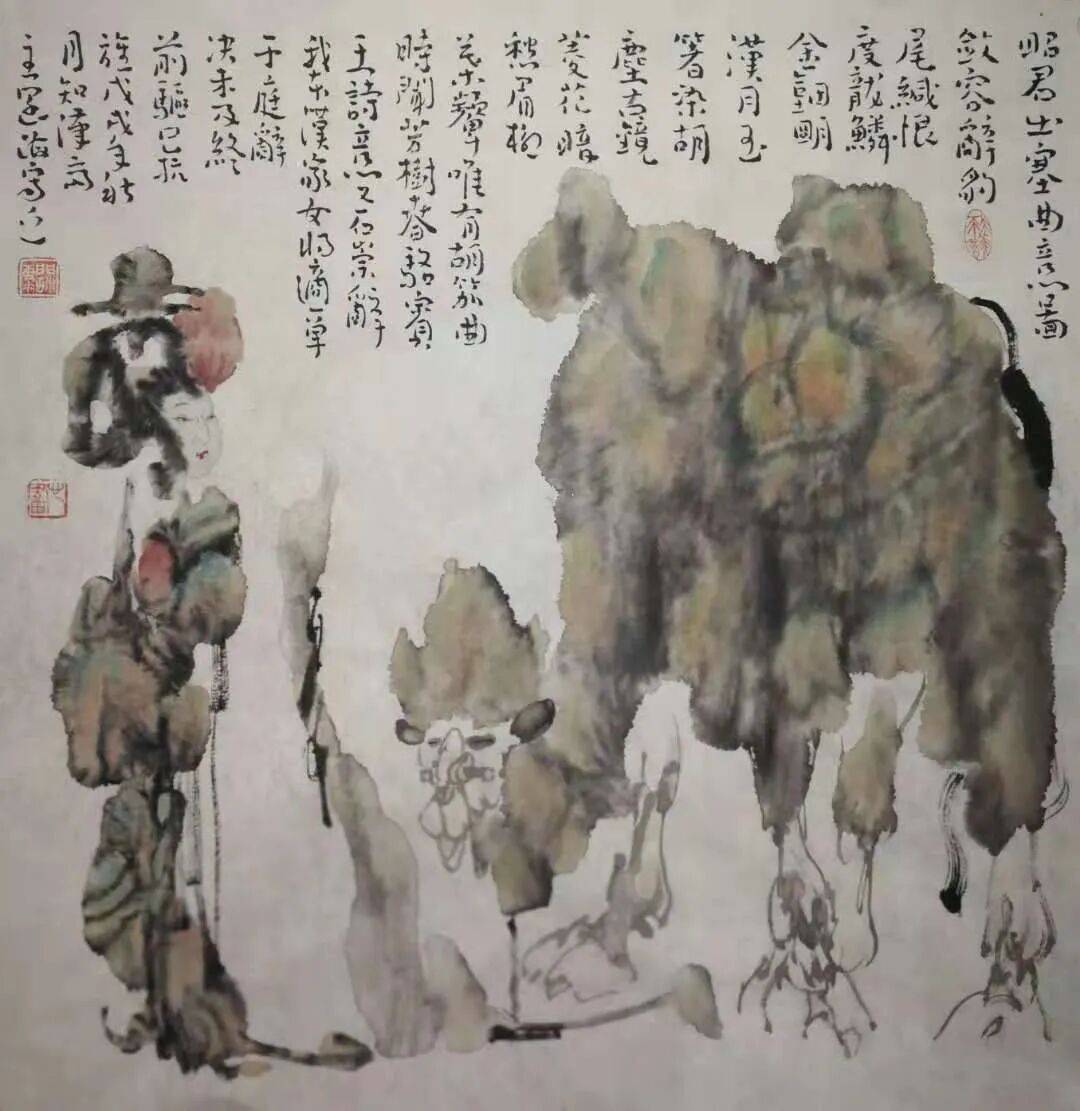 昭君出塞曲意圖
斂容辞豹
尾緘恨
度龍鱗
金鈿明
漢月玉
箸染胡
塵古鏡
菱花暗
愁眉柳
葉顰唯有胡笳曲
時聞芳樹春駱賓
王詩意又石崇辭
我本漢家女将適單
于庭辭
决未及終
前驅已抗
旌戊戌年秋
月知漢齋
主海寫